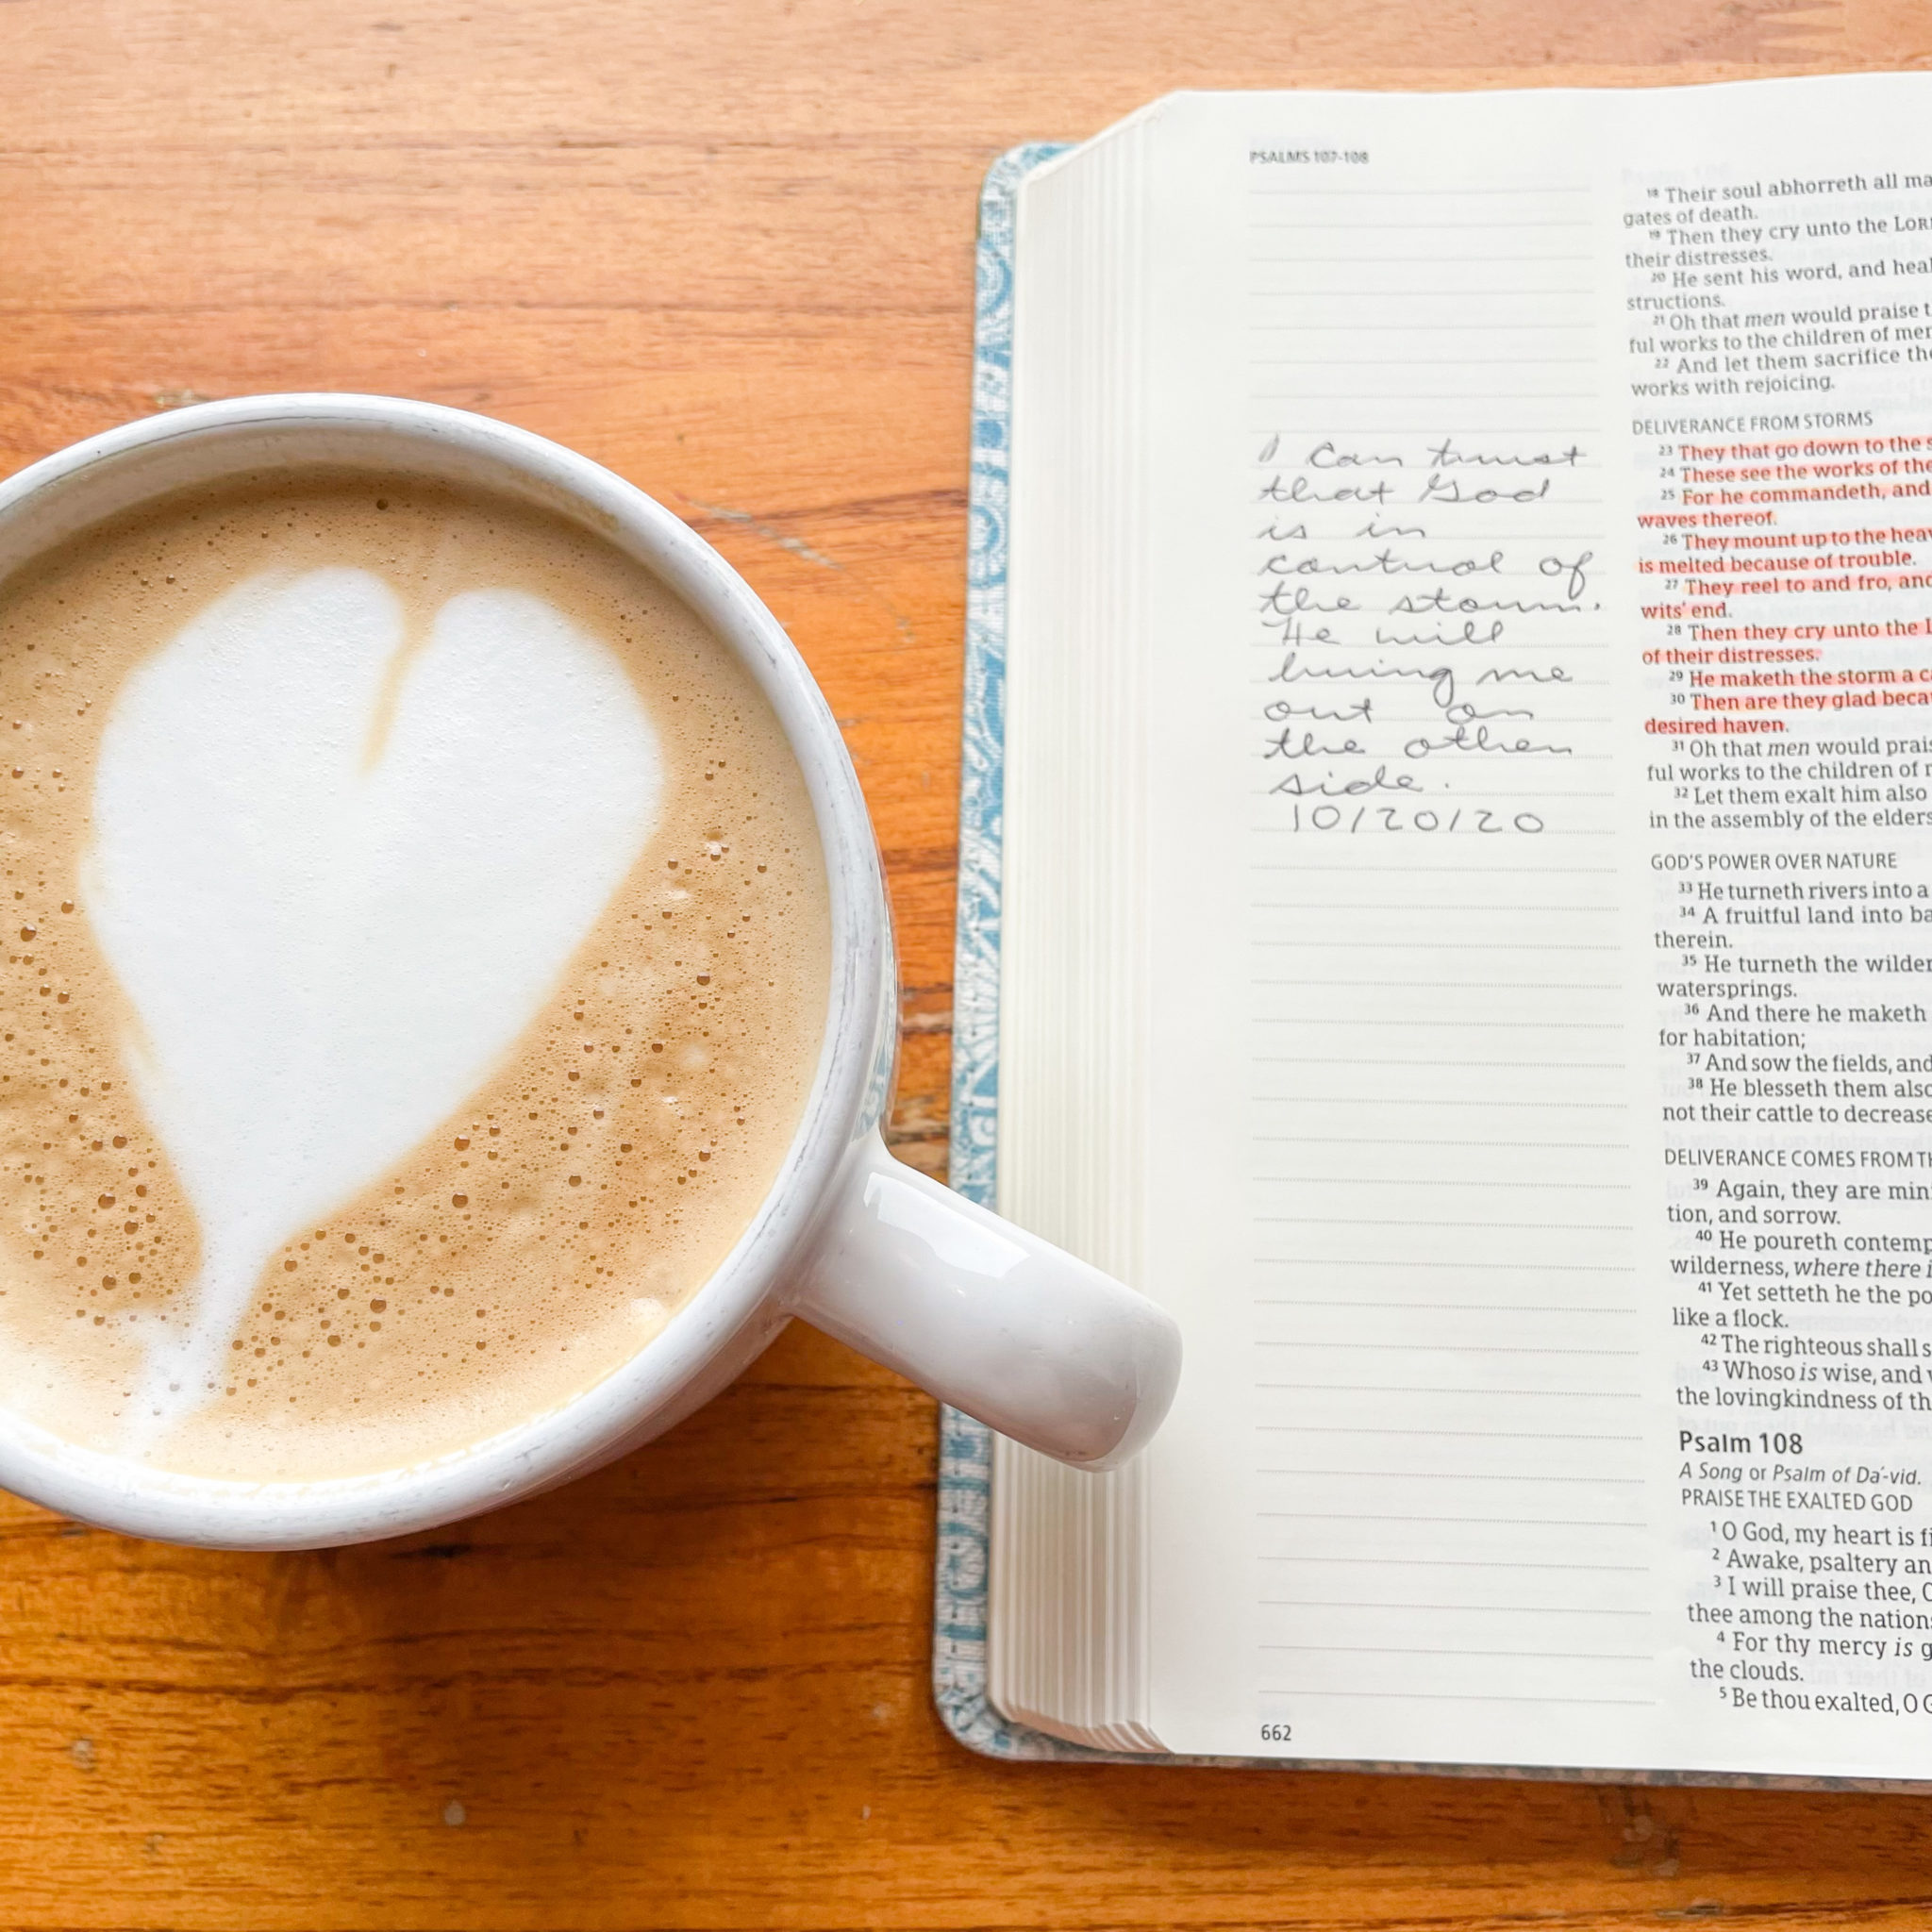 PSALMS 107-108
I can trust
that God
is in
control of
the storm.
He will
bring me
out on
the other
side.
10/20/20
662
18 Their soul abhorreth all ma
gates of death.
19 Then they cry unto the LOR
their distresses.
20 He sent his word, and heal
structions.
21 Oh that men would praise t
ful works to the children of men
22 And let them sacrifice the
works with rejoicing.
DELIVERANCE FROM STORMS
23 They that go down to the s
24 These see the works of the
25 For he commandeth, and
waves thereof.
26 They mount up to the heav
is melted because of trouble.
27 They reel to and fro, and
wits' end.
28 Then they cry unto the L
of their distresses.
29 He maketh the storm a c
30 Then are they glad beca
desired haven.
31 Oh that men would prais
ful works to the children of
32 Let them exalt him also
in the assembly of the elders
GOD'S POWER OVER NATURE
33 He turneth rivers into a
34 A fruitful land into ba
therein.
35 He turneth the wilder
watersprings.
36 And there he maketh
for habitation;
37 And sow the fields, and
38 He blesseth them also
not their cattle to decrease
DELIVERANCE COMES FROM TH
39 Again, they are min
tion, and sorrow.
40 He poureth contemp
wilderness, where there i
41 Yet setteth he the po
like a flock.
42 The righteous shall s
43 Whoso is wise, and
the lovingkindness of th
Psalm 108
A Song or Psalm of Da´-vid.
PRAISE THE EXALTED GOD
1 O God, my heart is fi
2 Awake, psaltery an
3 I will praise thee, O
thee among the nation
4 For thy mercy is g
the clouds.
5 Be thou exalted, O G